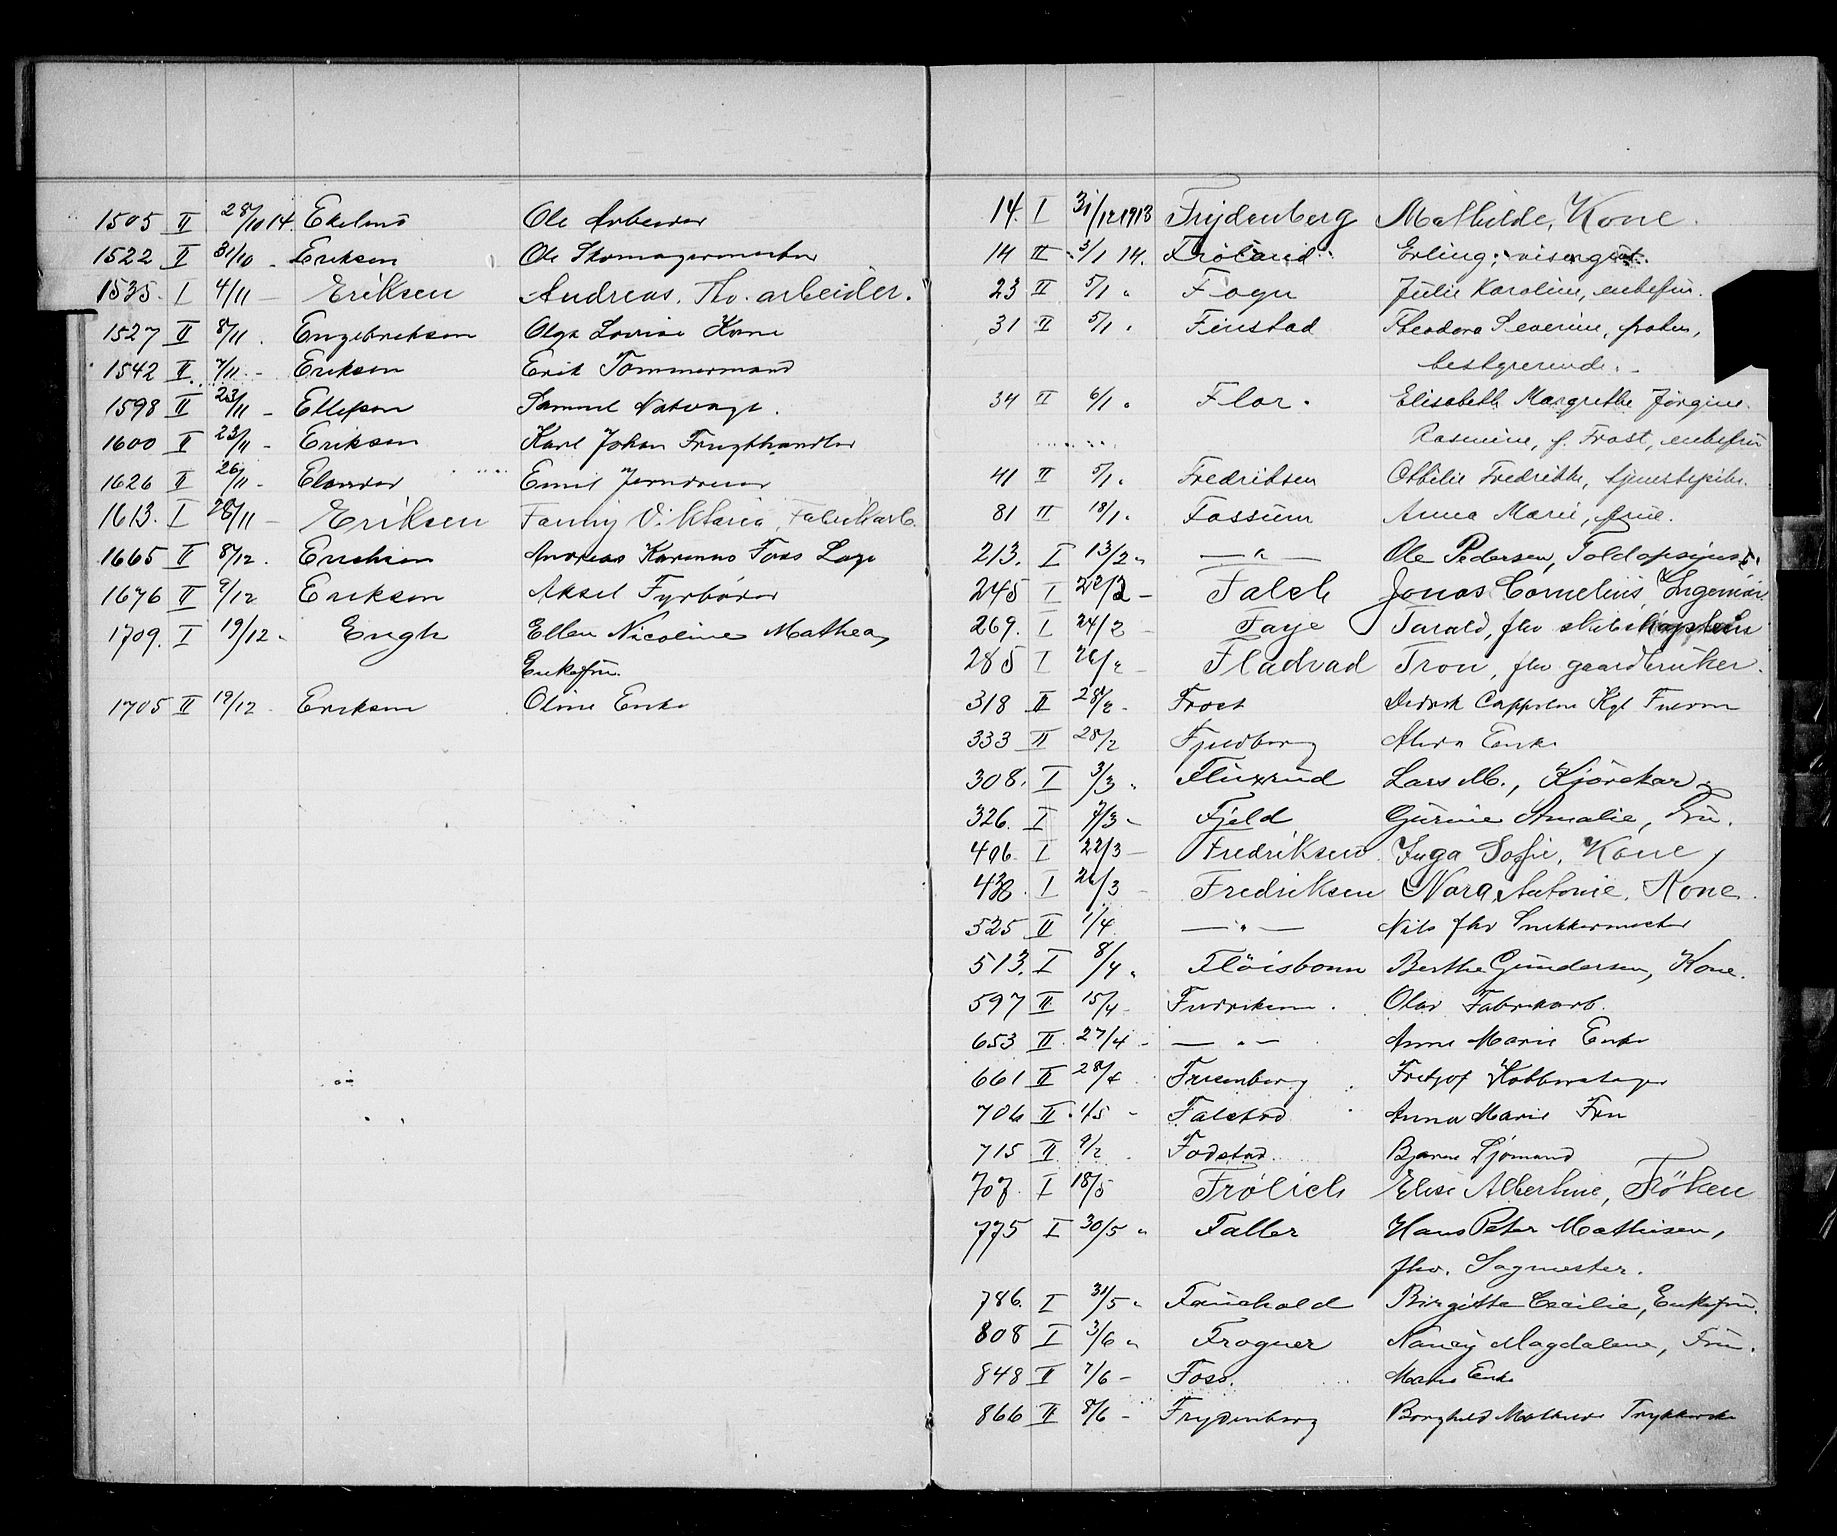 1505 II 28/10 14. Ekelund Ole Arbeider
1522 II 31/10 - Eriksen Ole Skomagermester
1535. I 4/11 - Eriksen Andreas. Th. arbeider.
1527 II 8/11 . Engebretsen Olga Lovise Kone
1542 II 7/11 - Eriksen Erik Tømmermand
1598 II 23/11 - Ellefsen Samuel Natvagt.
1600 II 23/11 - Eriksen Karl Johan Frugthandler
1626 II 26/11 - Elander Emil Jerndreier
1613. I 28/11 - Eriksen Fanny Viktoria, Fabrikarb.
1665 II 8/12 . Erichsen Andreas Foss Læge
1676 II 9/12 Eriksen Aksel Fyrbøder
1709. I 19/12 - Engh Ellen Nicoline Mathea,
Enkefru.
1705 II 19/12 - Eriksen Oline Enke
14. I 31/12 1913 Frydenberg Mathilde, Kone.
14 II 3/1 14. Frøland. Erling, visergut.
23 II 5/1 " Fogn Julie Karoline, enkefru.
31 II 5/1 " Finstad Theodora Severine, frøken,
bestyrerinde.
34 II 6/1 " Flor. Elisabeth Margrethe Jørgine
Rasmine, f. Frost, enkefru
41 II 5/1 " Fredriksen Othilie Fredrikke, tjenestepike.
81 II 18/1 " Fossum Anna Marie, frue.
213. I 13/2 " — " — Ole Pedersen, Toldopsynsb.
245 I 22/2 - Falch Jonas Cornelius, Ingeniør
269. I 24/2 - Faye Tarald, fhv skibskaptein
285 I 26/2 - Fladvad Tron, fhv gaardbruker.
318 II 28/2 - Frost Didrik Cappelen Kgl Fuldm
333 II 28/2 Fjeldberg Enke
308. I 3/3 " Fluxrud Lars M., Kjørekar
326. I 7/3 - Fjeld Gurine Amalie, Fru.
406. I 22/3 - Fredriksen Inga Sofie, Kone,
438. I 26/3 - Fredriksen Nora Antonie. Kone.
525 II 1/4 — " — Nils fhv Snekkermester
513. I 8/4 " Fløisbonn Berthe Gundersen, Kone.
597 II 15/4 - Fredriksen . Olav Fabrikarb.
653 II 27/4 - — " — Anne Marie Enke
661 II 28/4 Friisenberg Fritjof Kobberslager
706 II 4/5 - Falstad Anna Marie Fru
715 II 9/2 . Fodstad Bjarne Sjømand
707. I 18/5 Frølich Elise Albertine, Frøken
775 I 30/5 " Faller Hans Peter Mathisen,
fhv. Sagmester.
786. I 31/5 " Fauchald Birgitte Cecilie, Enkefru.
808 I 3/6 " Frogner Nancy Magdalene, Fru.
848 II 7/6 - Foss. Marie Enke
866 II 8/6 - Frydenberg Borghild Mathilde